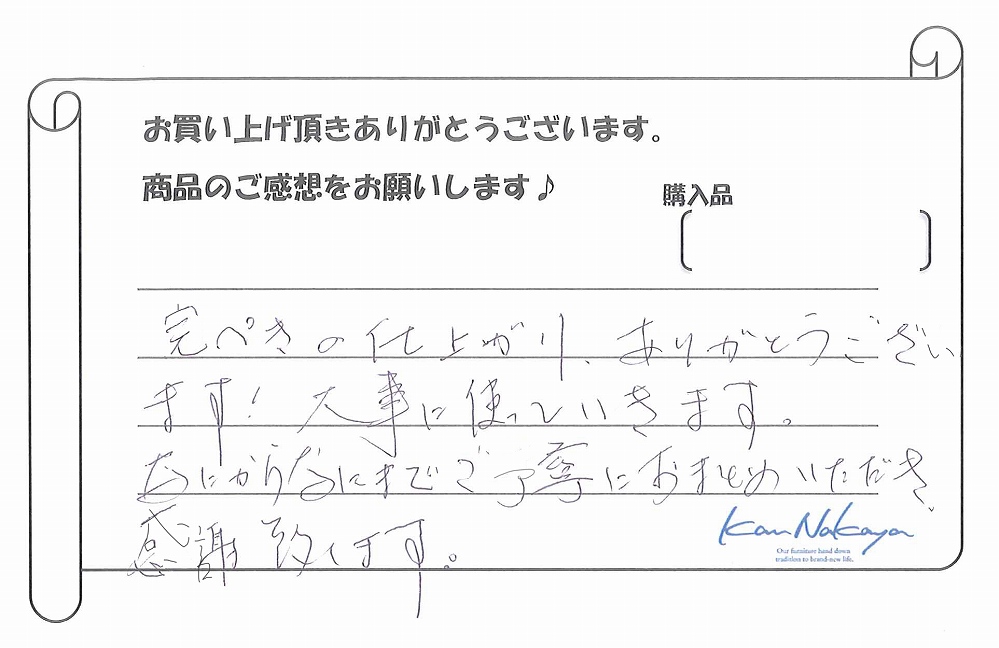 お買い上げ頂きありがとうございます。
商品のご感想をお願いします♪
購入品
完ぺきの仕上がり、ありがとうござい
ます！大事に使っていきます。
なにからなにまでご丁寧におまとめいただき
感謝致します。
Kan Nakaya
Our furniture hand down
tradition to brand-new life.